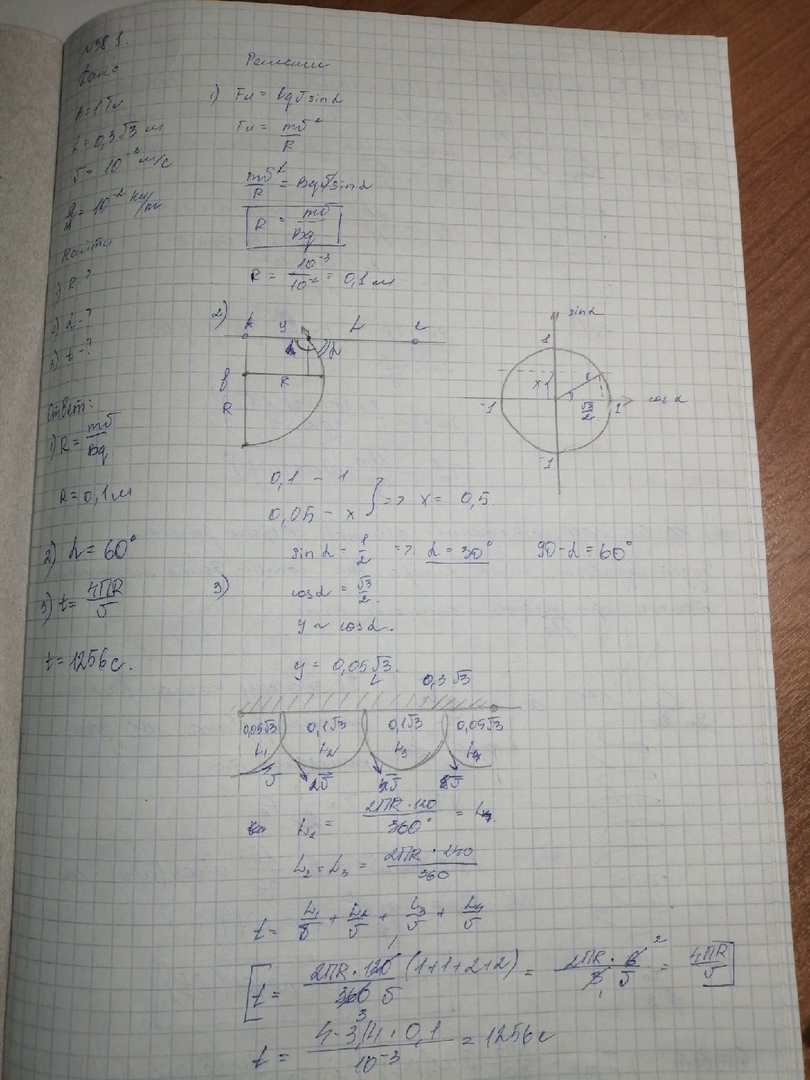 N38.1.
Дано
B = 1 Тл
L = 0,3√3 м
v = 10⁻³ м/с
q/m = 10⁻² Кл/кг
Найти
1) R - ?
2) α - ?
3) t - ?
Ответ:
1) R = mv/Bq
R = 0,1 м
2) α = 60°
3) t = 4ПR/v
t = 1256 с.
Решение
1) Fл = Bqv sinα
Fл = mv²/R
mv²/R = Bqv sinα
R = mv/Bq
R = 10⁻³/10⁻² = 0,1 м
2)
y L
R
R
sinα
1
x 1
-1 √3/2 1 cosα
-1
0,1 – 1
0,05 – x } => x = 0,5
sinα = 1/2 => α = 30° 90-α = 60°
3) cosα = √3/2.
y ~ cosα.
y = 0,05√3.
L 0,3√3
0,05√3 0,1√3 0,1√3 0,05√3
L₁ L₂ L₃ L₄
L₁ = 2ПR · 120/360° = L₄
L₂ = L₃ = 2ПR · 240/360
t = L₁/v + L₂/v + L₃/v + L₄/v
t = 2ПR · 120/360 v (1+1+2+2) = 2ПR · 6/3 v = 4ПR/v
t = 4 · 3,14 · 0,1/10⁻³ = 1256 с